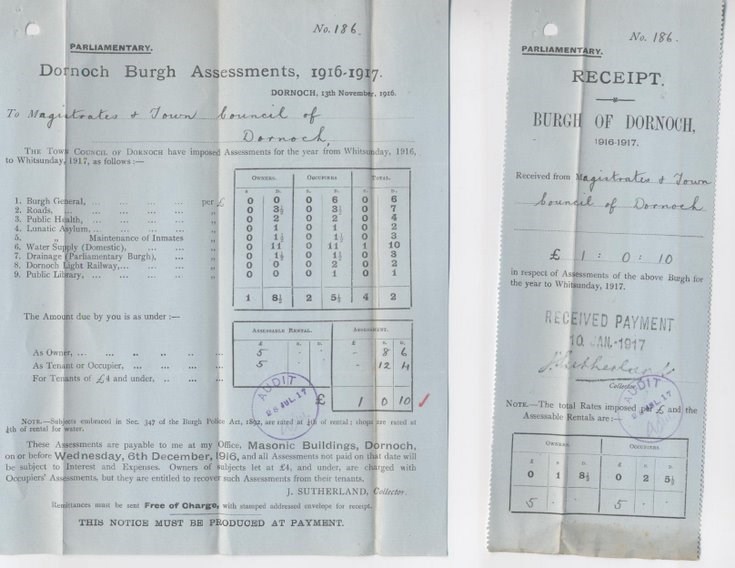 No. 186.
PARLIAMENTARY.
Dornoch Burgh Assessments, 1916-1917.
DORNOCH, 13th November, 1916.
To Magistrates & Town Council of
Dornoch,
THE TOWN COUNCIL OF DORNOCH have imposed Assessments for the year from Whitsunday, 1916,
to Whitsunday, 1917, as follows:—
OWNERS. OCCUPIERS TOTAL.
S. D. S. D. S. D.
1. Burgh General, ... ... ... ... per £ 0 0 0 6 0 6
2. Roads, ... ... ... ... ... „ 0 3½ 0 3½ 0 7
3. Public Health, ... ... ... ... „ 0 2 0 2 0 4
4. Lunatic Asylum, ... ... ... ... „ 0 1 0 1 0 2
5. „ Maintenance of Inmates „ 0 1½ 0 1½ 0 3
6. Water Supply (Domestic), ... ... „ 0 11 0 11 1 10
7. Drainage (Parliamentary Burgh), ... „ 0 1½ 0 1½ 0 3
8. Dornoch Light Railway, ... ... ... „ 0 0 0 2 0 2
9. Public Library, ... ... ... ... „ 0 0 0 1 0 1
1 8½ 2 5½ 4 2
The Amount due by you is as under:—
ASSESSABLE RENTAL. ASSESSMENT.
£ s. d. £ s. d.
As Owner, ... 5 . . - 8 6
As Tenant or Occupier, ... 5 . . - 12 4
For Tenants of £4 and under, ..
£ 1 0 10 ✓
AUDIT
JUL.17
NOTE.—Subjects embraced in Sec. 347 of the Burgh Police Act, 1892, are rated at ¼th of rental; shops are rated at
¼th of rental for water.
These Assessments are payable to me at my Office, Masonic Buildings, Dornoch,
on or before Wednesday, 6th December, 1916, and all Assessments not paid on that date will
be subject to Interest and Expenses. Owners of subjects let at £4, and under, are charged with
Occupiers' Assessments, but they are entitled to recover such Assessments from their tenants.
J. SUTHERLAND, Collector.
Remittances must be sent Free of Charge, with stamped addressed envelope for receipt.
THIS NOTICE MUST BE PRODUCED AT PAYMENT.
No. 186.
PARLIAMENTARY.
RECEIPT.
BURGH OF DORNOCH,
1916-1917.
Received from Magistrates & Town
Council of Dornoch
£ 1 : 0 : 10
in respect of Assessments of the above Burgh for
the year to Whitsunday, 1917.
RECEIVED PAYMENT
10 JAN.1917
J. Sutherland
Collector.
AUDIT
JUL.17
NOTE.—The total Rates imposed per £ and the
Assessable Rentals are:—
OWNERS. OCCUPIERS.
£ s. d. £ s. d.
0 1 8½ 0 2 5½
5 . . 5 . .